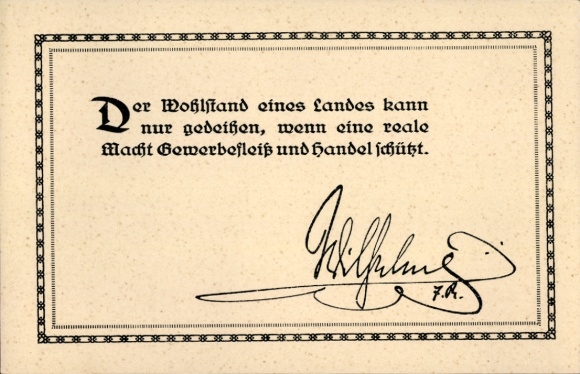 Der Wohlstand eines Landes kann
nur gedeihen, wenn eine reale
Macht Gewerbefleiß und Handel schützt.
Wilhelm
I.R.